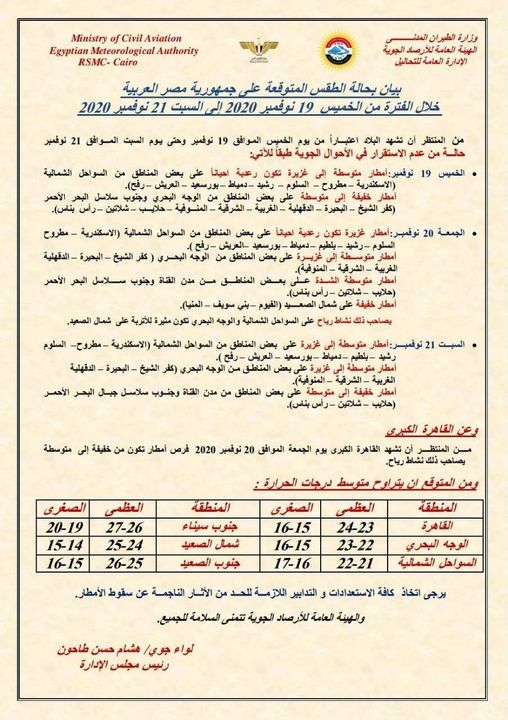 Ministry of Civil Aviation
Egyptian Meteorological Authority
RSMC- Cairo
وزارة الطيران المدنى
الهيئة العامة للأرصاد الجوية
الإدارة العامة للتحاليل
بيان بحالة الطقس المتوقعة على جمهورية مصر العربية
خلال الفترة من الخميس 19 نوفمبر 2020 إلى السبت 21 نوفمبر 2020
من المنتظر أن تشهد البلاد اعتباراً من يوم الخميس الموافق 19 نوفمبر وحتى يوم السبت الموافق 21 نوفمبر
حالة من عدم الاستقرار في الأحوال الجوية طبقاً للآتي:
• الخميس 19 نوفمبر: أمطار متوسطة إلى غزيرة تكون رعدية احياناً على بعض المناطق من السواحل الشمالية
(الاسكندرية – مطروح – السلوم – رشيد – دمياط – بورسعيد – العريش – رفح).
أمطار خفيفة إلى متوسطة على بعض المناطق من الوجه البحري وجنوب سلاسل البحر الأحمر
(كفر الشيخ – البحيرة – الدقهلية – الغربية – الشرقية – المنوفية – حلايب – شلاتين – رأس بناس).
• الجمعة 20 نوفمبر: أمطار غزيرة تكون رعدية احياناً على بعض المناطق من السواحل الشمالية (الاسكندرية – مطروح
السلوم – رشيد – بلطيم – دمياط – بورسعيد – العريش – رفح ).
أمطار متوسطة إلى غزيرة على بعض المناطق من الوجه البحري ( كفر الشيخ – البحيرة – الدقهلية
الغربية – الشرقية – المنوفية).
أمطار متوسطة الشدة على بعض المناطق من مدن القناة وجنوب سلاسل البحر الأحمر
(حلايب – شلاتين – رأس بناس).
أمطار خفيفة على شمال الصعيد (الفيوم – بني سويف – المنيا).
يصاحب ذلك نشاط رياح على السواحل الشمالية والوجه البحري تكون مثيرة للأتربة على شمال الصعيد.
• السبت 21 نوفمبر: أمطار متوسطة إلى غزيرة على بعض المناطق من السواحل الشمالية (الاسكندرية – مطروح– السلوم
رشيد – بلطيم – دمياط – بورسعيد – العريش – رفح ).
أمطار متوسطة إلى غزيرة على بعض المناطق من الوجه البحري (كفر الشيخ – البحيرة – الدقهلية
الغربية – الشرقية – المنوفية).
أمطار خفيفة إلى متوسطة على بعض المناطق من مدن القناة وجنوب سلاسل جبال البحر الأحمر
(حلايب – شلاتين – رأس بناس).
وعن القاهرة الكبرى
من المنتظر أن تشهد القاهرة الكبرى يوم الجمعة الموافق 20 نوفمبر 2020 فرص أمطار تكون من خفيفة إلى متوسطة
يصاحب ذلك نشاط رياح.
ومن المتوقع ان يتراوح متوسط درجات الحرارة :
المنطقة العظمى الصغرى المنطقة العظمى الصغرى
القاهرة 24-23 16-15 جنوب سيناء 27-26 20-19
الوجه البحري 23-22 16-15 شمال الصعيد 25-24 15-14
السواحل الشمالية 22-21 17-16 جنوب الصعيد 26-25 16-15
يرجى اتخاذ كافة الاستعدادات و التدابير اللازمة للحد من الأثار الناجمة عن سقوط الأمطار.
والهيئة العامة للأرصاد الجوية تتمنى السلامة للجميع.
لواء جوي/ هشام حسن طاحون
رئيس مجلس الإدارة